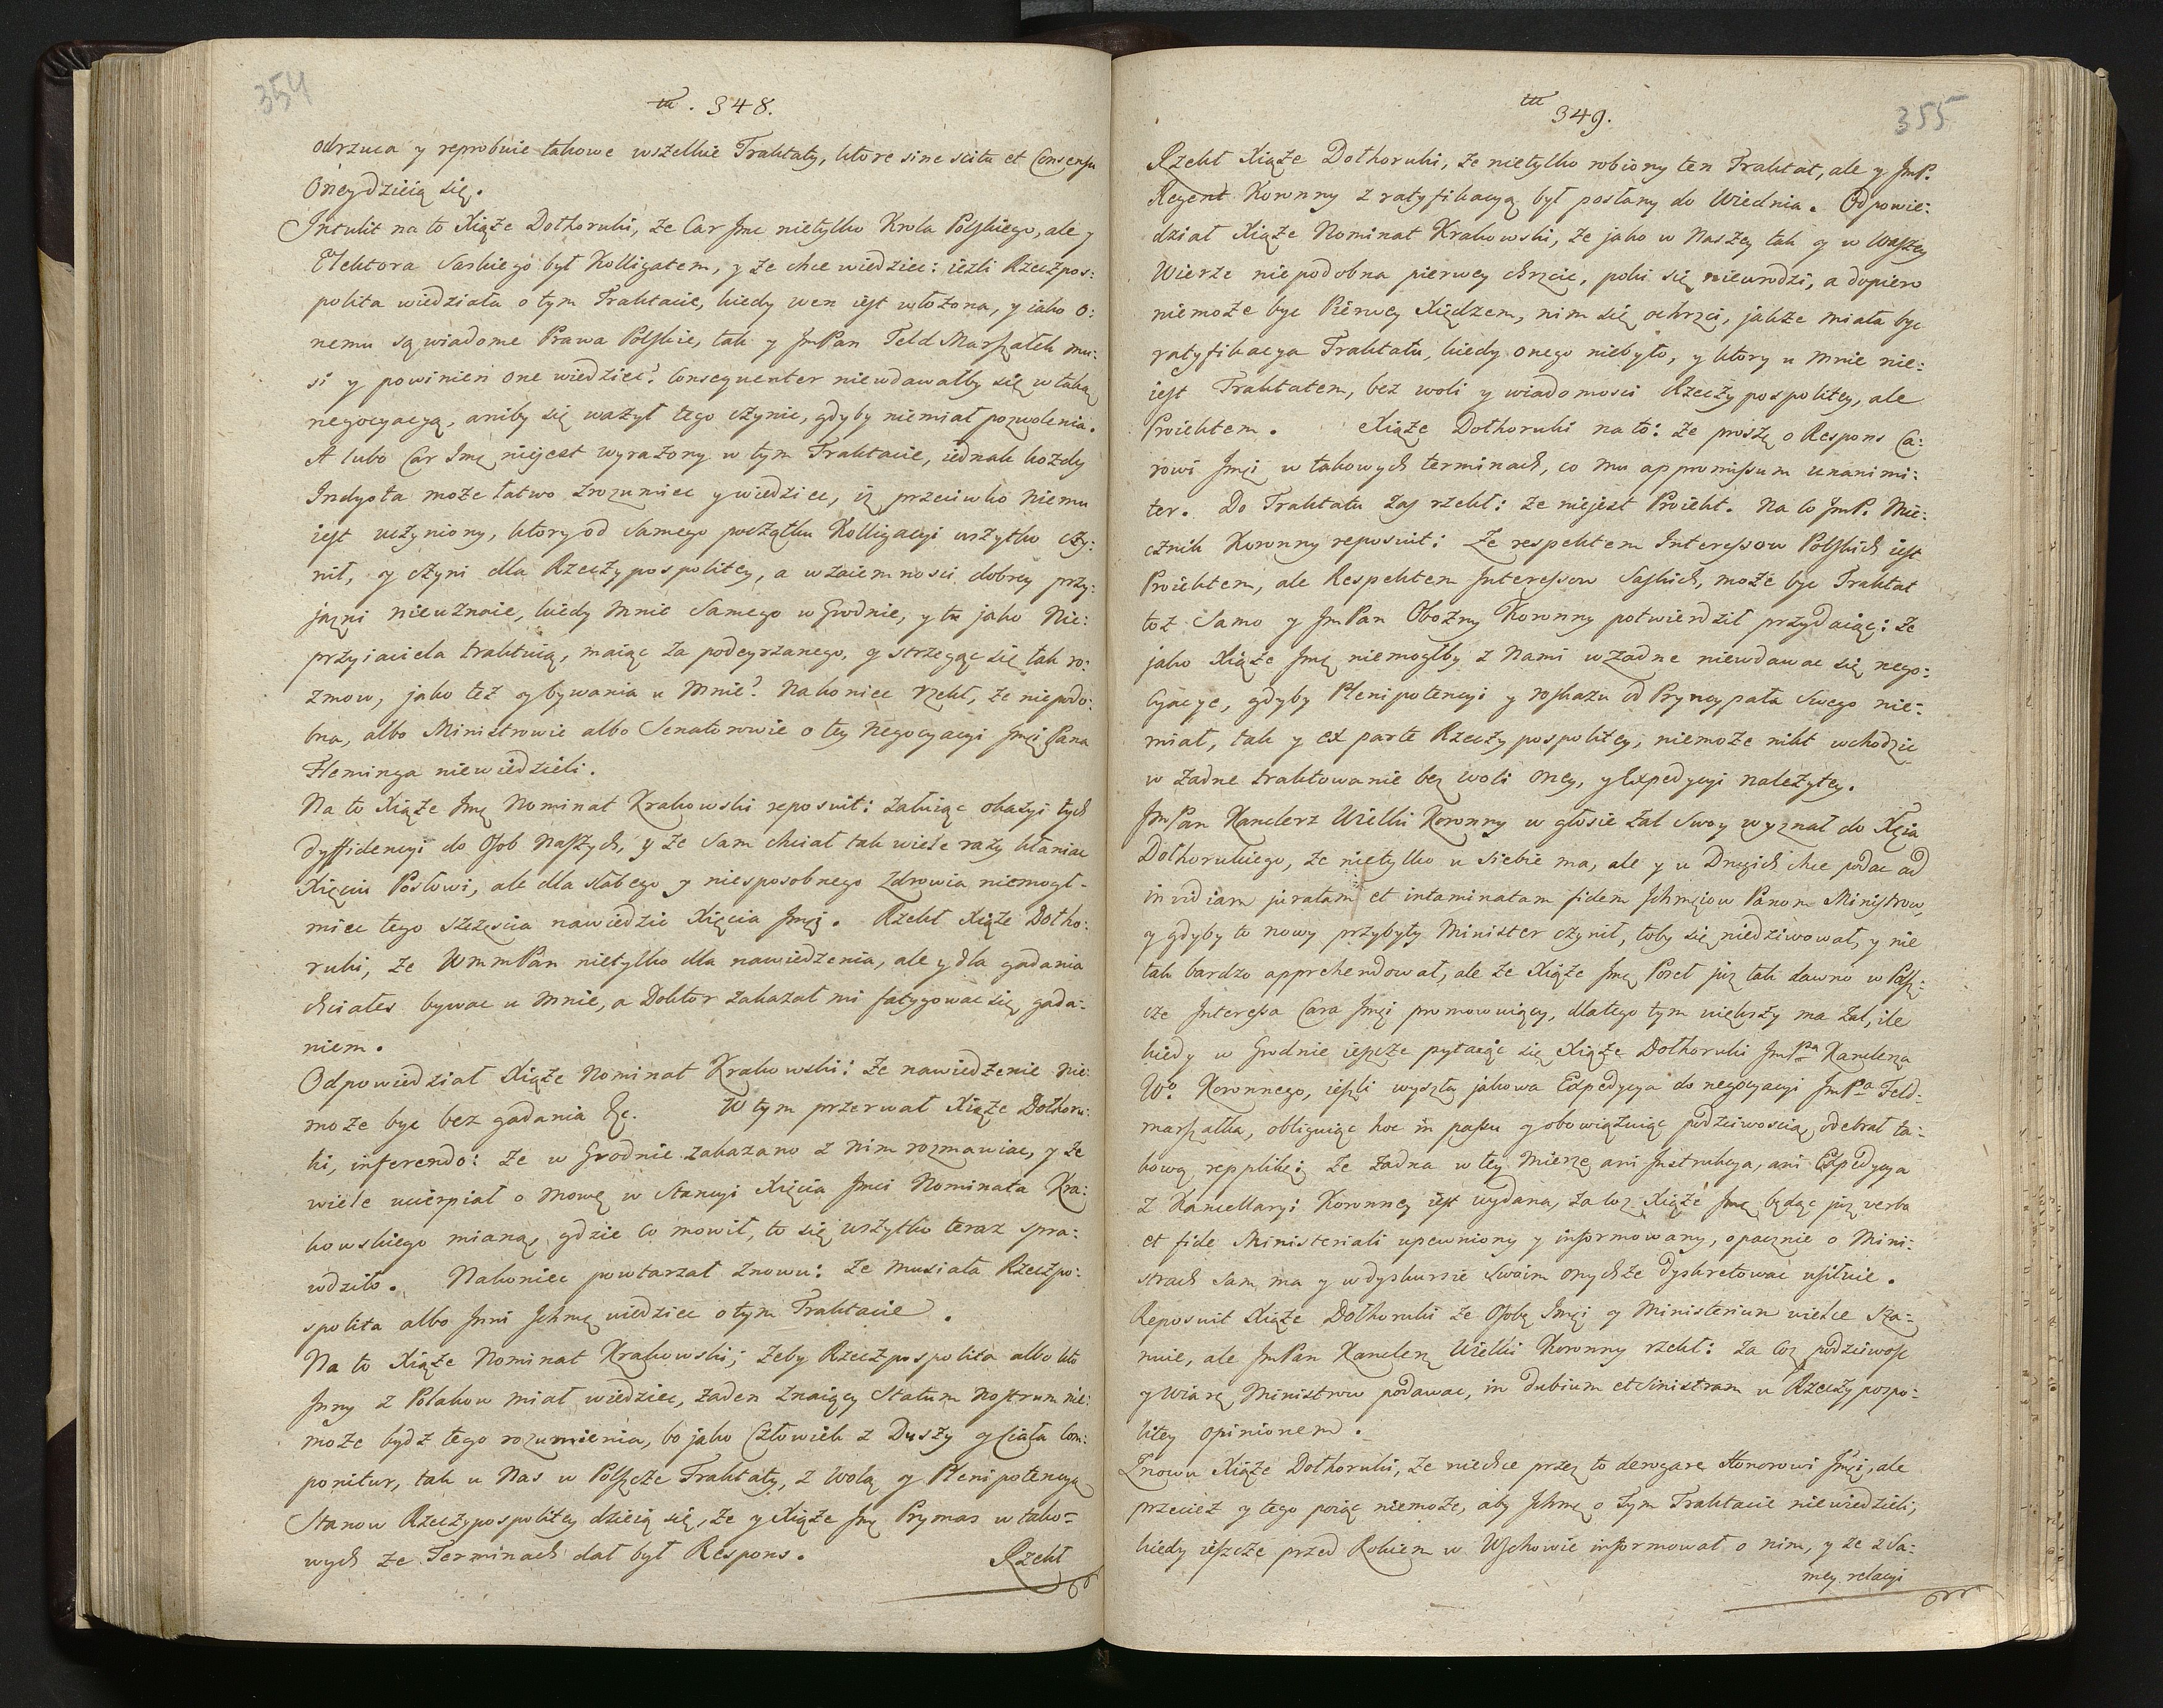 354
348.
odrzuca y reprobuie takowe wszelkie Traktaty, ktore sine scitu et Consensu
Oney dzieią się.
Intulit na to Xiąże Dołhoruki, że Car Jmc nietylko Krola Polskiego, ale y
Elektora Saskiego był Kolligatem, y że chce wiedziec: ieżli Rzeczpos:
polita wiedziała o tym Traktacie, kiedy wen iest włożona, y iako o:
nemu są wiadome Prawa Polskie, tak y JmPan Feld Marszałek mu:
si y powinien one wiedziec? Consequenter niewdawałby się w taką
negocyacyą, aniby się ważył tego czynic, gdyby niemiał pozwolenia.
A lubo Car Jmę niejest wyrażony w tym Traktacie, iednak kożdy
Indyota może łatwo zrozumiec y wiedziec, iż przeciwko niemu
iest uczyniony, ktory od Samego początku Kolligacyi wszytko czy:
nił, y czyni dla Rzeczypospolitey, a wzaiemnosci dobrey przy:
jazni nieuznaie, kiedy mnie Samego w Grodnie, y tu jako Nie:
przyiaciela traktuią, maiąc za podeyrzanego, y strzegąc się tak ro:
zmow, jako też y bywania u mnie? Nakoniec rzekł, że niepodo:
bna, albo Ministrowie albo Senatorowie o tey Negocyacyi Jmci Pana
Fleminga niewiedzieli.
Na to Xiąże Jmę Nominat Krakowski reposuit: żałuiąc okazyi tych
dyffidencyi do Osob Naszych, y że Sam chciał tak wiele razy kłaniac
Xięciu Posłowi, ale dla słabego y niesposobnego Zdrowia niemogł
miec tego szczęscia nawiedzic Xięcia Jmci. Rzekł Xiąże Dołho:
ruki, że WmmPan nietylko dla nawiedzenia, ale y dla gadania
chciałes bywac u mnie, a Doktor zakazał mi fatygowac się gada:
niem.
Odpowiedział Xiąże Nominat Krakowski: że nawiedzenie nie:
może byc bez gadania &c. W tym przerwał Xiąże Dołhoru:
ki, inferendo: że w Grodnie zakazano z nim rozmawiac, y że
wiele ucierpiał o mowę w Stancyi Xięcia Jmci Nominata Kra:
kowskiego mianą, gdzie co mowił, to się wszytko teraz spra:
wdziło. Nakoniec powtarzał znowu: że musiała Rzeczpo:
spolita albo Jnni Jchmę wiedziec o tym Traktacie.
Na to Xiąże Nominat Krakowski; żeby Rzeczpospolita albo kto
Jnny z Polakow miał wiedziec, żaden znaiący Statum nostrum nie:
może bydz tego rozumienia, bo jako Człowiek z Duszy y Ciała com:
ponitur, tak u Nas w Polszcze Traktaty, z wolą y Plenipotencyą
Stanow Rzeczypospolitey dzieią się, że y Xiąże Jmę Prymas w tako:
wych że Terminach dał był Respons.
Rzekł
355
349.
Rzekł Xiąże Dołhoruki, że nietylko robiony ten Traktat, ale y JmP.
Regent Koronny z ratyfikacyą był posłany do Wiednia. Odpowie:
dział Xiąże Nominat Krakowski, że jako w Naszey tak y w Waszey
Wierze niepodobna pierwey chrzcic, poki się nieurodzi, a dopiero
niemoże byc Pierwey Xiędzem, nim się ochrzci, jakże miała byc
ratyfikacya Traktatu, kiedy onego niebyło, y ktory u mnie nie:
iest Traktatem, bez woli y wiadomosci Rzeczypospolitey, ale
Proiektem. Xiąże Dołhoruki na to: że proszę o Respons Ca:
rowi Jmci w takowych terminach, co mu appromissum unanimi:
ter. Do Traktatu zas rzekł: że niejest Proiekt. Na to JmP. Mie:
cznik Koronny reposuit: Że respektem Interessow Polskich iest
Proiektem, ale Respektem Jnteressow Saskich, może byc Traktat
toż Samo y JmPan Obozny Koronny potwierdził przydaiąc: że
jako Xiąże Jmę niemogłby z Nami w żadne niewdawac się nego:
cyacye, gdyby Plenipotencyi y roskazu od Pryncypała Swego nie:
miał, tak y ex parte Rzeczypospolitey, niemoże nikt wchodzic
w żadne traktowanie bez woli oney, y Expedycyi należytey.
JmPan Kanclerz Wielki Koronny w głosie żal Swoy wyznał do Xcia
Dołhorukiego, że nietylko u siebie ma, ale y u Drugich chce podac ad
invidiam juratam et intaminatam fidem Jchmciow Panow Ministrow,
y gdyby to nowy przybyły Minister czynił, toby się niedziwował, y nie
tak bardzo apprehendował, ale że Xiąże Jmę Poseł już tak dawno w Pols:
cze Jnteressa Cara Jmci promowuiący, dlatego tym większy ma żal, ile
kiedy w Grodnie ieszcze pytaiąc się Xiąże Dołhoruki JmPa Kanclerza
Wo. Koronnego, ieżli wyszła jakowa Expedycya do negocyacyi JmPa Feld:
marszałka, obliguiąc hoc in passu y obowiązuiąc poczciwoscią, odebrał ta:
kową repplikę; że żadna w tey mierze ani Jnstrukcya, ani Expedycya
z Kancellaryi Koronney iest wydana, za coż Xiąże Jmę będąc już verbo
et fide Ministeriali upewniony y informowany, opacznie o Mini:
strach sam ma y w dyskursie swoim onychże dyskretowac usilnie.
Reposuit Xiąże Dołhoruki że Osobę Jmci y Ministerium wielce sza:
nuie, ale JmPan Kanclerz Wielki Koronny rzekł: za coż podziwosc
y wiarę Ministrow podawac, in dubium et sinistram u Rzeczypospo:
litey opinionem.
Znowu Xiąże Dołhoruki, że niechce przez to derogare Honorowi Jmci, ale
przecież y tego poiąc niemoże, aby Jchmę o tym Traktacie niewiedzieli,
kiedy ieszcze przed Rokiem w Wschowie informował o nim, y że z sa:
mey relacyi